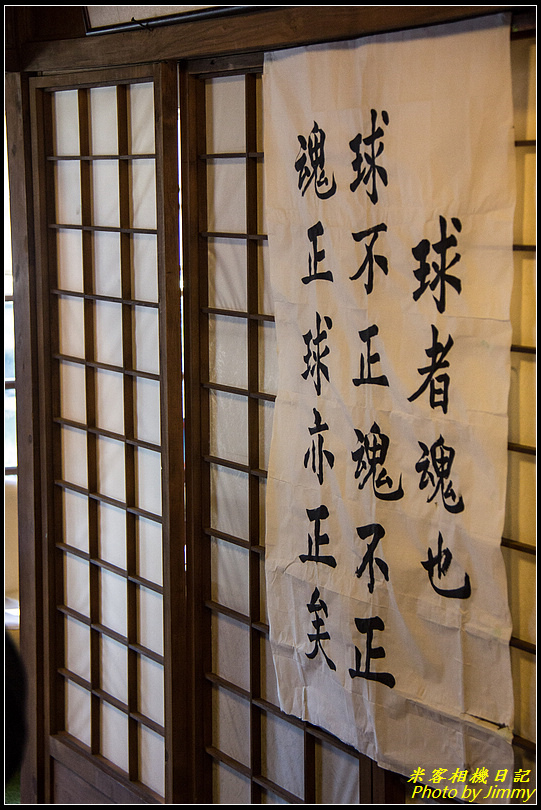 球者魂也
球不正魂不正
魂正球亦正矣
米客相機日記
Photo by Jimmy